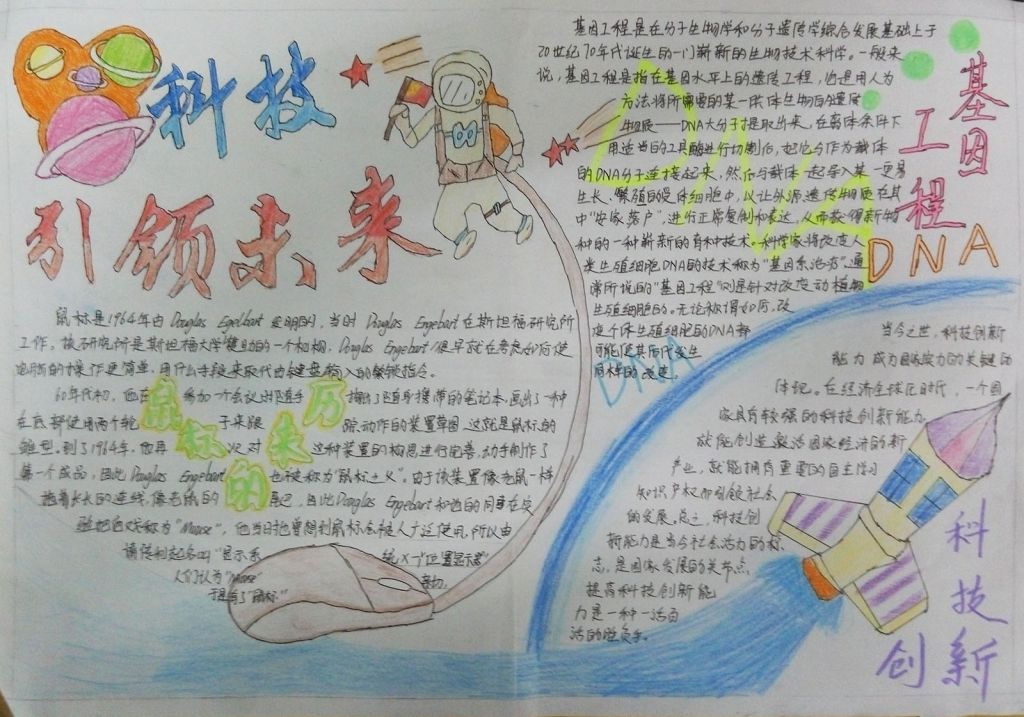 科技
引领未来
鼠标是1964年由Douglas Engelbart发明的,当时Douglas Engebart在斯坦福研究所
工作,该研究所是斯坦福大学赞助的一个机构,Douglas Engebart很早就在考虑如何使
电脑的操作更简单,用什么手段来取代由键盘输入的繁锁指令。
60年代初,他在参加一次会议时随手掏出了随身携带的笔记本,画出了一种
在底部使用两个轮子来跟踪动作的装置草图,这就是鼠标的
雏型,到了1964年,他再次对这种装置的构思进行完善,动手制作了
第一个成品,因此Douglas Engebart也被称为"鼠标之父"。由于该装置像老鼠一样
拖着长长的连线,像老鼠的尾巴,因此Douglas Engebart和他的同事在实
验把它戏称为"Mouse",他当时也曾想到鼠标会被人广泛使用,所以申
请专利起名叫"显示系统X-Y位置显示器"
人们认为"Mouse"亲切,
于是有了"鼠标"
鼠标的来历
基因工程是在分子生物学和分子遗传学综合发展基础上于
20世纪70年代诞生的一门崭新的生物技术科学。一般来
说,基因工程是指在基因水平上的遗传工程,他是用人为
方法将所需要的某一供体生物的遗传
物质——DNA大分子提取出来,在离体条件下
用适当的工具酶进行切割后,把它与作为载体
的DNA分子连接起来,然后与载体一起导入某一更易
生长、繁殖的受体细胞中,以让外源遗传物质在其
中"安家落户",进行正常复制和表达,从而获得新物
种的一种崭新的育种技术。科学家将改变人
类生殖细胞DNA的技术称为"基因系治疗",通
常所说的"基因工程"则是针对改变动植物
生殖细胞的。无论称谓如何,改
变个体生殖细胞的DNA都
可能使其后代发生
同样的改变。
DNA
DNA
基因
工程
DNA
当今之世,科技创新
能力成为国家实力的关键的
体现。在经济全球化时代,一个国
家具有较强的科技创新能力,
就能创造激活国家经济的新
产业,就能拥有重要的自主
知识产权而引领社会
的发展。总之,科技创
新能力是当今社会活力的标
志,是国家发展的关节点,
提高科技创新能
力是一种
科技
创新